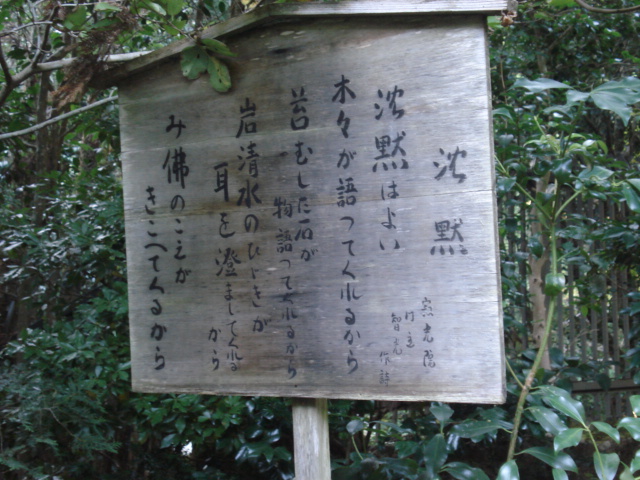 沈黙
寂光院
智光
作詩
沈黙はよい
木々が語ってくれるから
苔むした石が
物語ってくれるから
岩清水のひゞきが
耳を澄ましてくれる
から
み佛のこえが
きこへてくるから